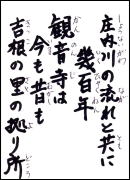 庄内川の流れと共に
幾百年
観音寺は
今も昔も
吉根の里の拠り所